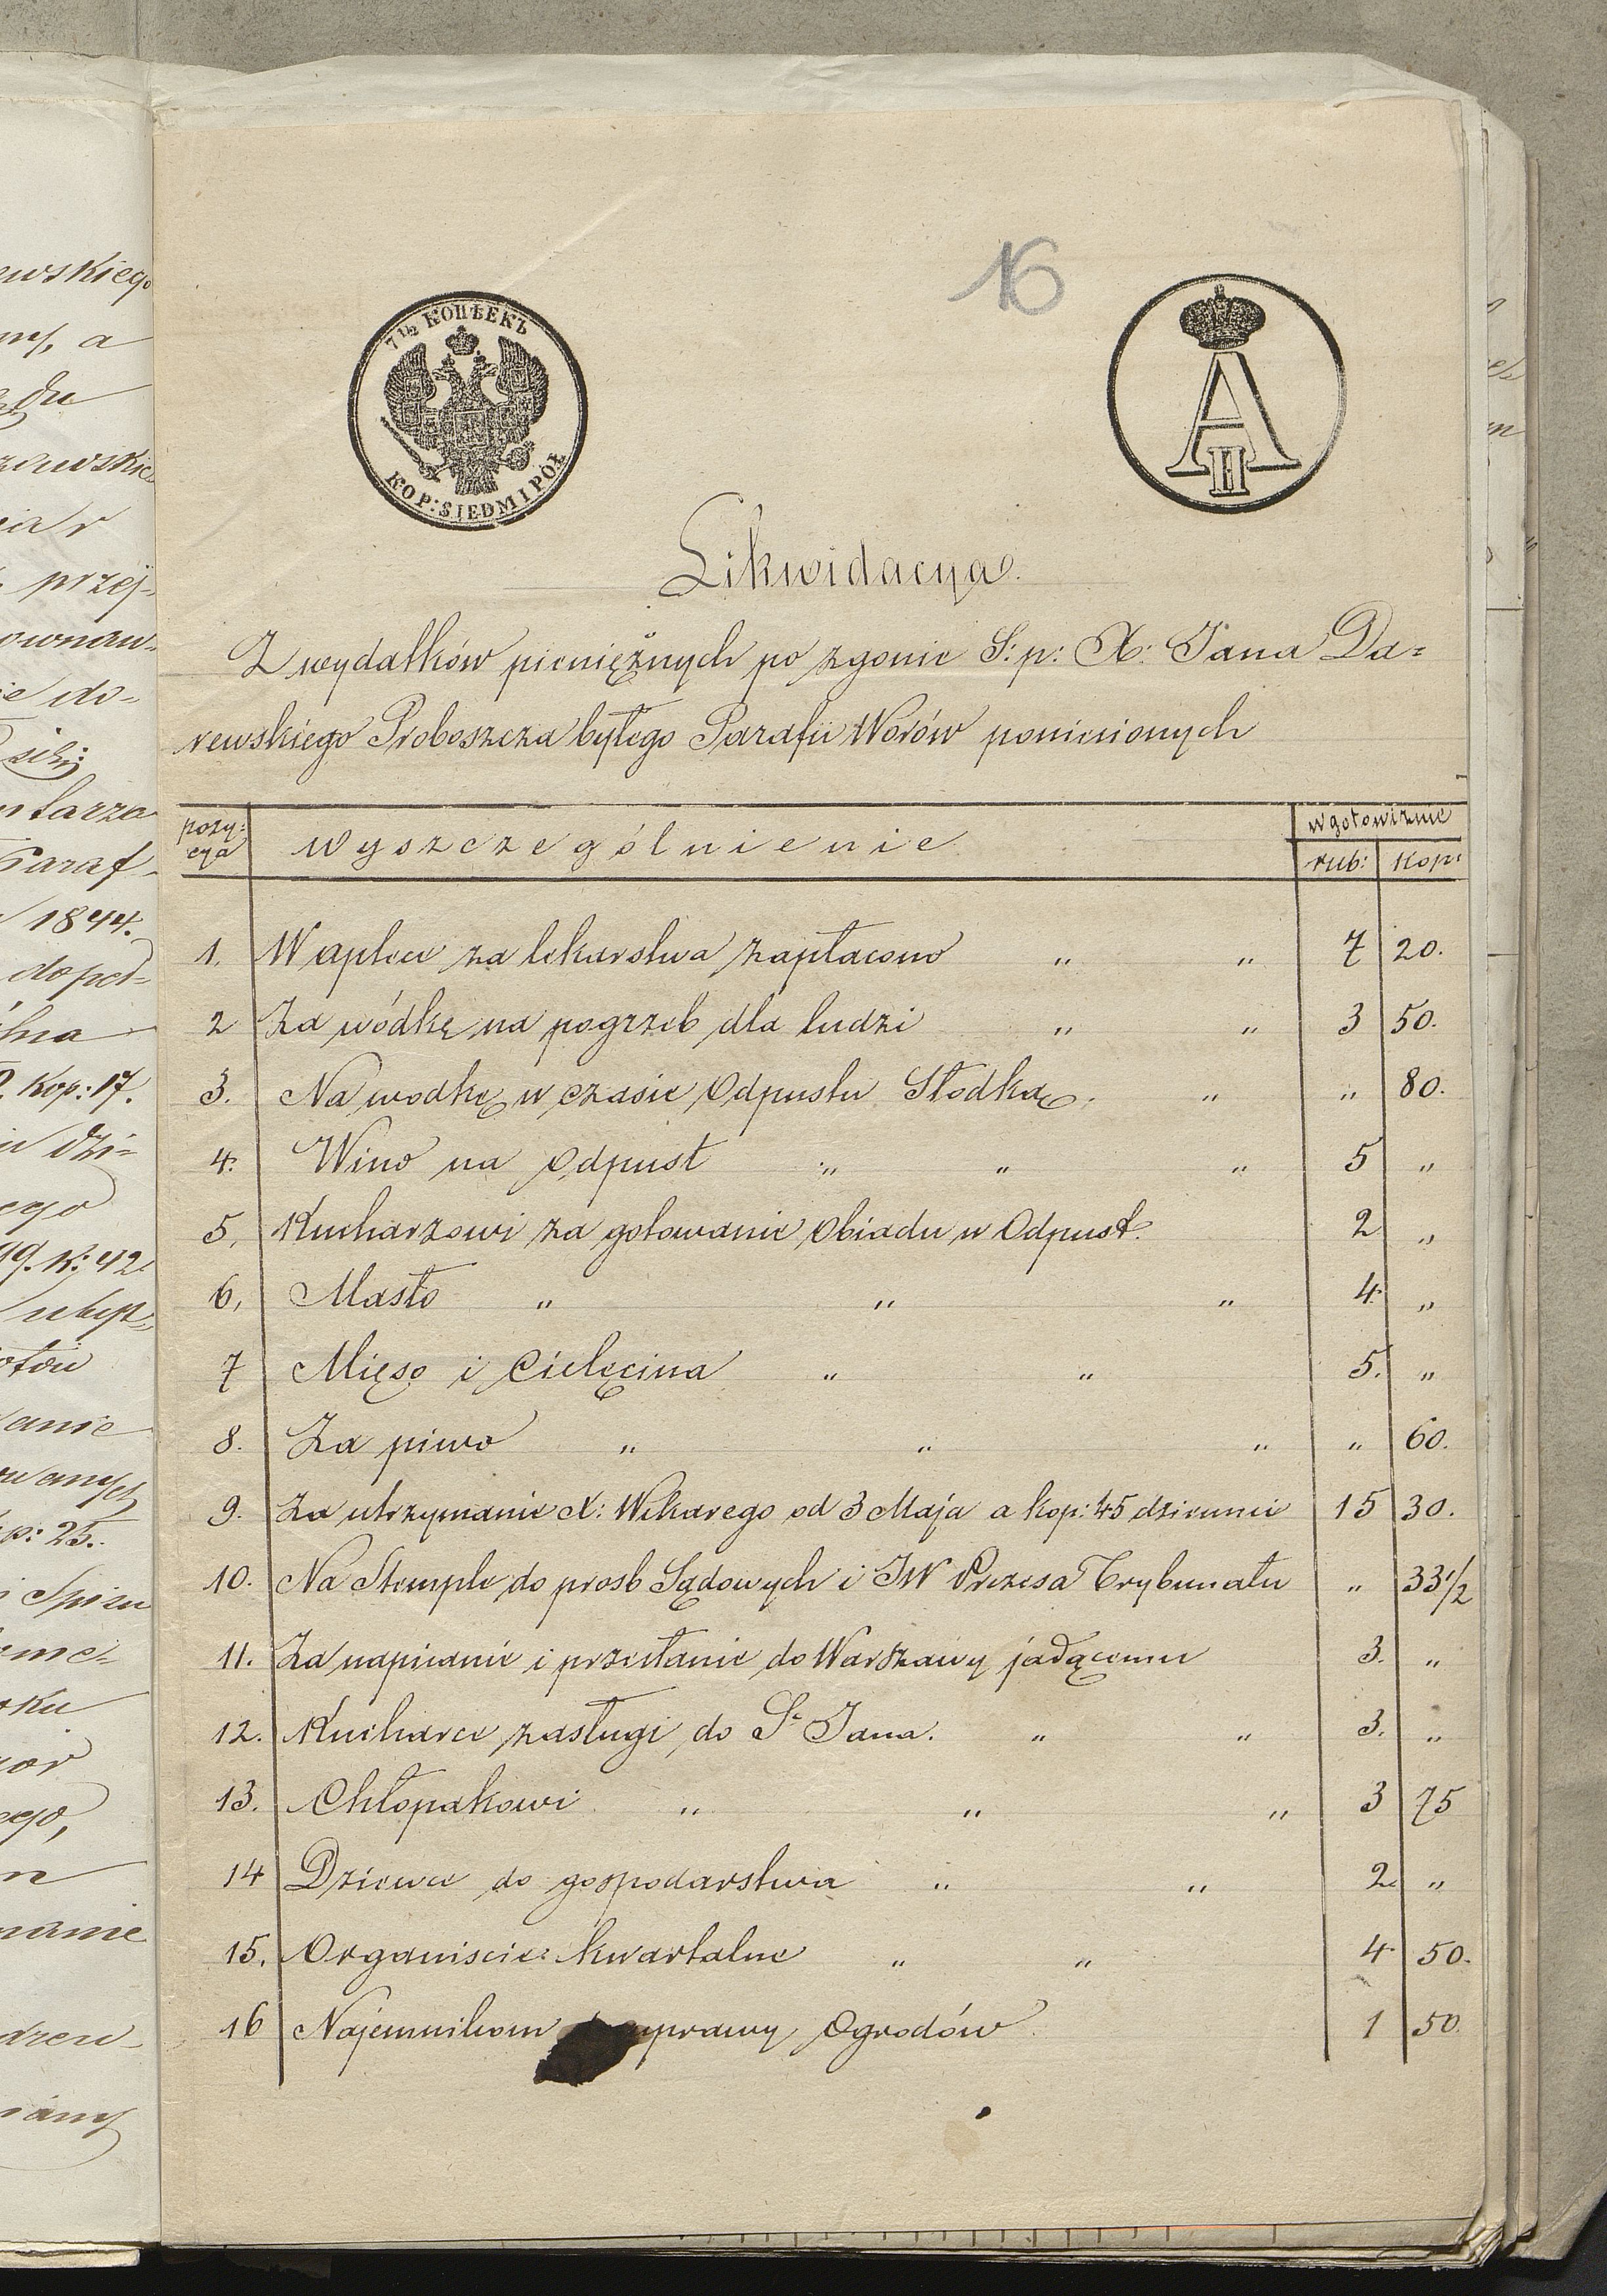 16
7 1/2 КОПѢЕКЪ
KOP: SIEDM I PÓŁ
A II
Likwidacya.
Z wydatków pieniężnych po zgonie S: p: X: Jana Da=
rewskiego Proboszcza byłego Parafii Worów poniesionych
pozy: cya wyszczególnienie w gotowiznie
rub: kop:
1. W aptece za lekarstwa zapłacono " " 7 20.
2 Za wódkę na pogrzeb dla ludzi " " 3 50.
3. Na wodkę w czasie Odpustu Słodką. " " 80.
4. Wino na Odpust " " " 5 "
5, Kucharzowi za gotowanie Obiadu w Odpust. 2 "
6, Masło " " " 4. "
7 Mięso i Cielęcina " " 5. "
8. Za piwo " " " " 60.
9. Za utrzymanie X: Wikarego od 3 Maja a kop: 45 dziennie 15 30.
10. Na Stemple do prosb Sądowych i JW Prezesa Trybunału " 33 1/2
11. Za napisanie i przesłanie do Warszawy jadącemu 3. "
12. Kucharce zasługi do St Jana. " " 3. "
13. Chłopakowi " " " 3 75
14 Dziewce do gospodarstwa " " 2. "
15. Organiscie kwartalne " " 4 50.
16 Najemnikom uprawy Ogrodów 1 50.
ewskiego
a
przej-
do-
Paraf-
1844.
Kop: 17.
dzi=
K: 42
anie
p: 25.